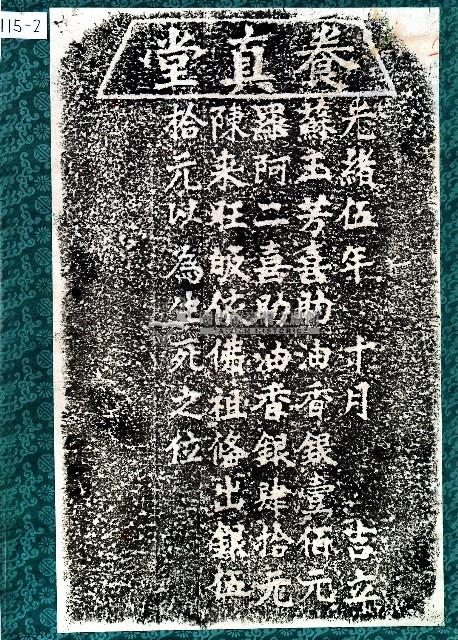 115-2
養真堂
光緒伍年 十月 吉立
蘇玉芳喜助油香銀壹佰元
羅阿二喜助油香銀肆拾元
陳来旺皈依佛祖俻出銀伍
拾元以為生死之位